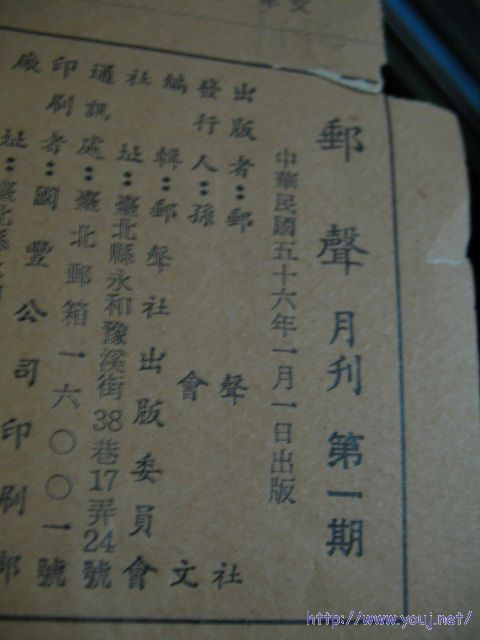 郵聲月刊 第一期
中華民國五十六年一月一日出版
出版者：郵聲社
發行人：孫會文
編輯：郵聲社出版委員會
社址：臺北縣永和豫溪街38巷17弄24號
通訊處：臺北郵箱一六〇〇一號
印刷者：國豐公司印刷部
廠址：臺北縣
http://www.youj.net/